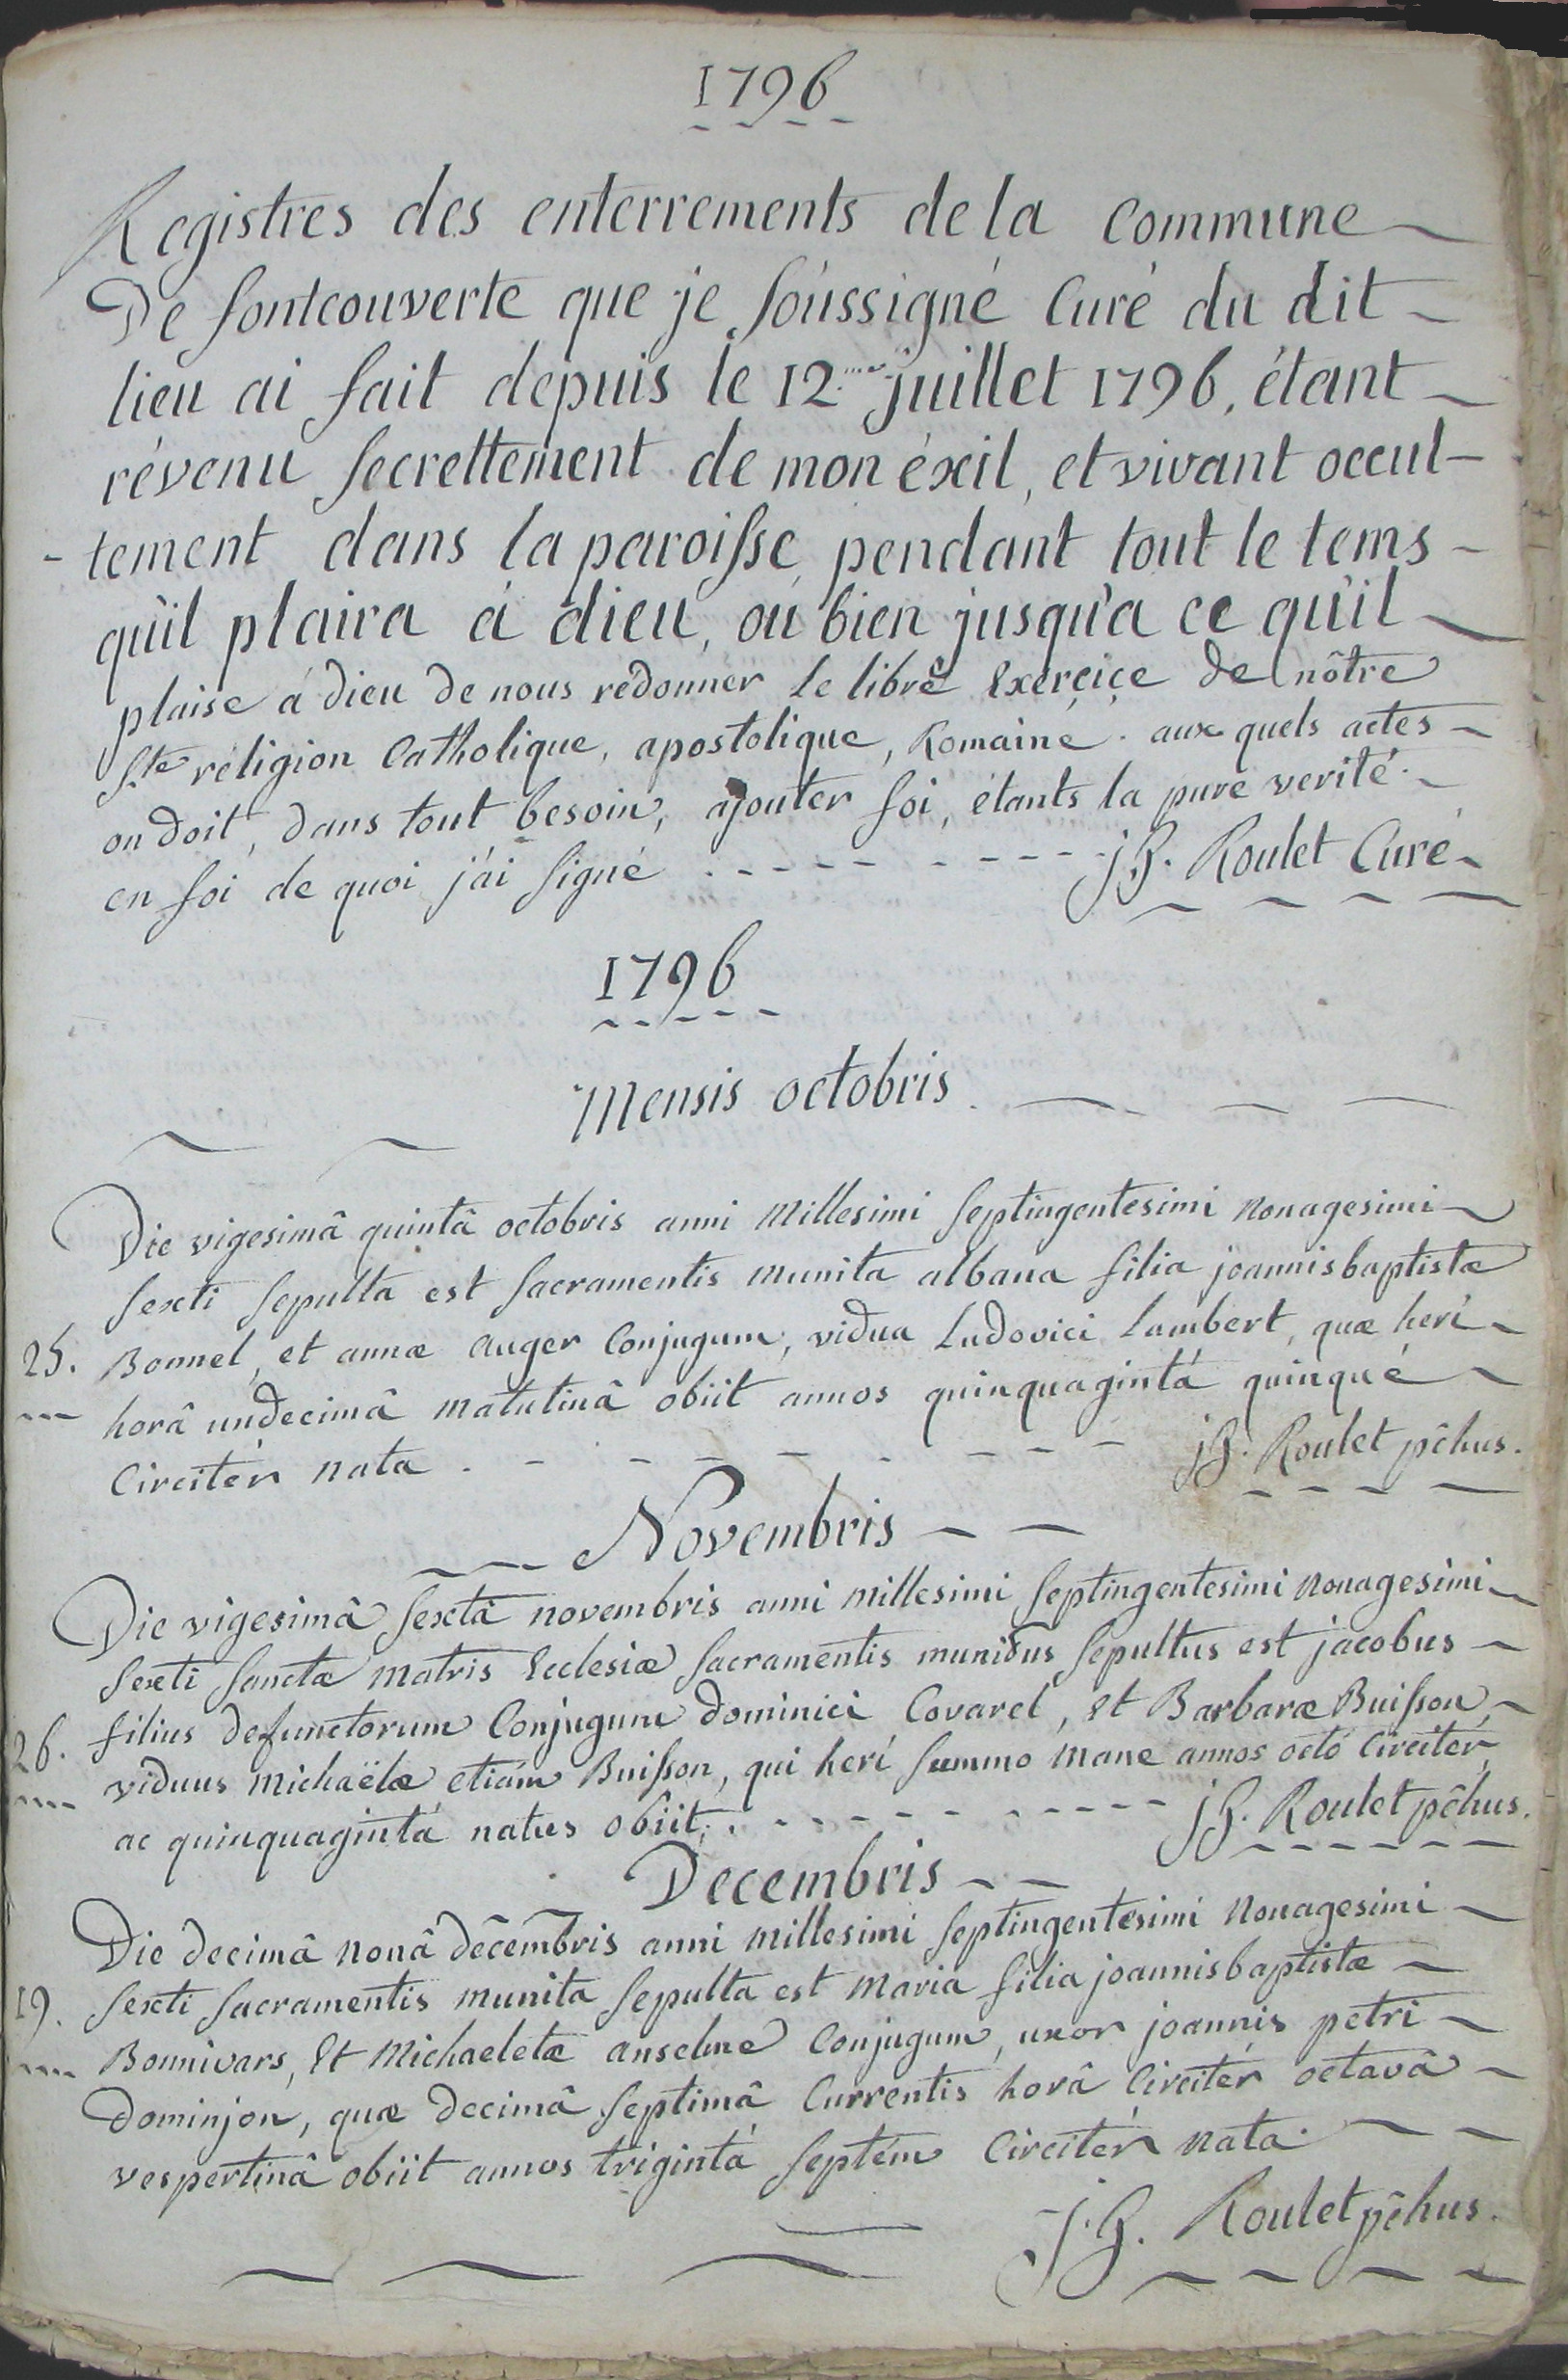 1796
Registres des enterrements de la commune
De fontcouverte que je soussigné Curé du dit
lieu ai fait depuis le 12.me juillet 1796, étant
révenu secrettement de mon éxil, et vivant occul-
-tement dans la paroisse pendant tout le tems
qu'il plaira à dieu, ou bien jusqu'a ce qu'il
plaise à dieu de nous rédonner le libre Exerçiçe de nôtre
Ste réligion Catholique, apostolique, Romaine. aux quels actes
on doit, dans tout besoin, ajouter foi, étants la pure verité.
en foi de quoi j'ai signé JB. Roulet Curé
1796
Mensis octobris
Die vigesimâ quintâ octobris anni Millesimi septingentesimi Nonagesimi
sexti sepulta est sacramentis munita albana filia joannisbaptistæ
25. Bonnel, et annæ Auger Conjugum, vidua Ludovici Lambert, quæ heri
horâ undecimâ matutinâ obiit annos quinquagintá quinqué
Circitér nata. JB. Roulet pêhus.
Novembris
Die vigesimâ sextâ novembris anni millesimi septingentesimi Nonagesimi
sexti sanctæ matris Ecclesiæ sacramentis munitus sepultus est jacobus
26. filius defunctorum Conjugum dominici Covarel, Et Barbaræ Buisson,
viduus Michaëlæ etiám Buisson, qui herí summo mane annos octó Circitér
ac quinquagintá natus obiit. JB. Roulet pêhus.
Decembris
Die decimâ nonâ decembris anni millesimi septingentesimi Nonagesimi
19. sexti sacramentis munita sepulta est Maria filia joannisbaptistæ
Bonnivars, Et Michaeletæ anselme Conjugum, uxor joannis petri
Dominjon, quæ decimâ septimâ Currentis horâ Circitér octavâ
vespertinâ obiit annos trigintá septém Circitér nata.
J.B. Roulet pêhus.